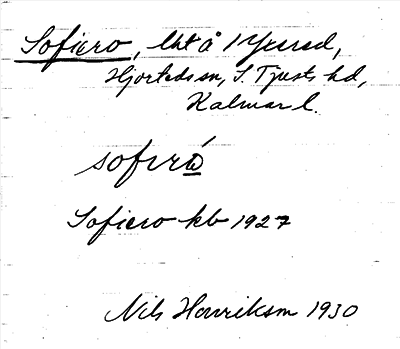 Sofiero, lht å Yxered,
Hjorteds sn, S. Tjusts hd,
Kalmar l.
sofirò
Sofiero kb 1927
Nils Henriksson 1930